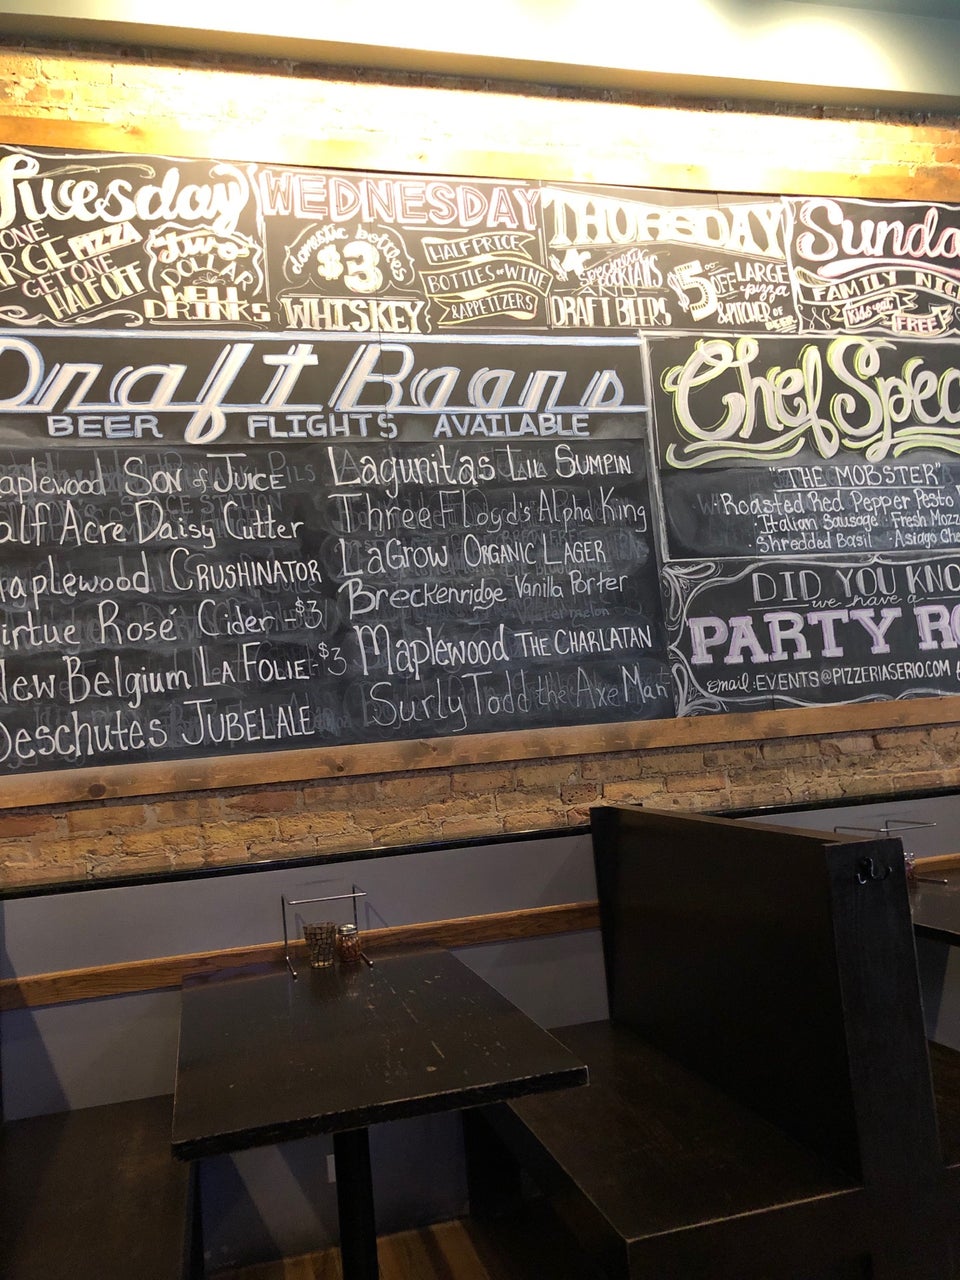 Tuesday
ONE
PIZZA
GET ONE
HALF OFF
Two
DOLLAR
WELL
DRINKS
WEDNESDAY
domestic bottles
$3
WHISKEY
HALF PRICE
BOTTLES OF WINE
& APPETIZERS
THURSDAY
$4 Specialty
COCKTAILS
DRAFT BEERS
$5.00 OFF LARGE
pizza
& PITCHER OF
BEER
FAMILY
kids eat
FREE
Draft Beers
BEER FLIGHTS AVAILABLE
SON of JUICE
Acre Daisy Cutter
CRUSHINATOR
Rosé Cider -$3
Belgium LA FOLIE -$3
Deschutes JUBELALE
Lagunitas LIL SUMPIN
Three Floyd's Alpha King
LaGrow ORGANIC LAGER
Breckenridge Vanilla Porter
Maplewood THE CHARLATAN
Surly Todd the Axe Man
Chef
"THE MOBSTER"
Roasted Red Pepper Pesto
· Italian Sausage · Fresh
· Shredded Basil · Asiago
DID YOU
we have a
PARTY
email: EVENTS@PIZZERIASERIO.COM